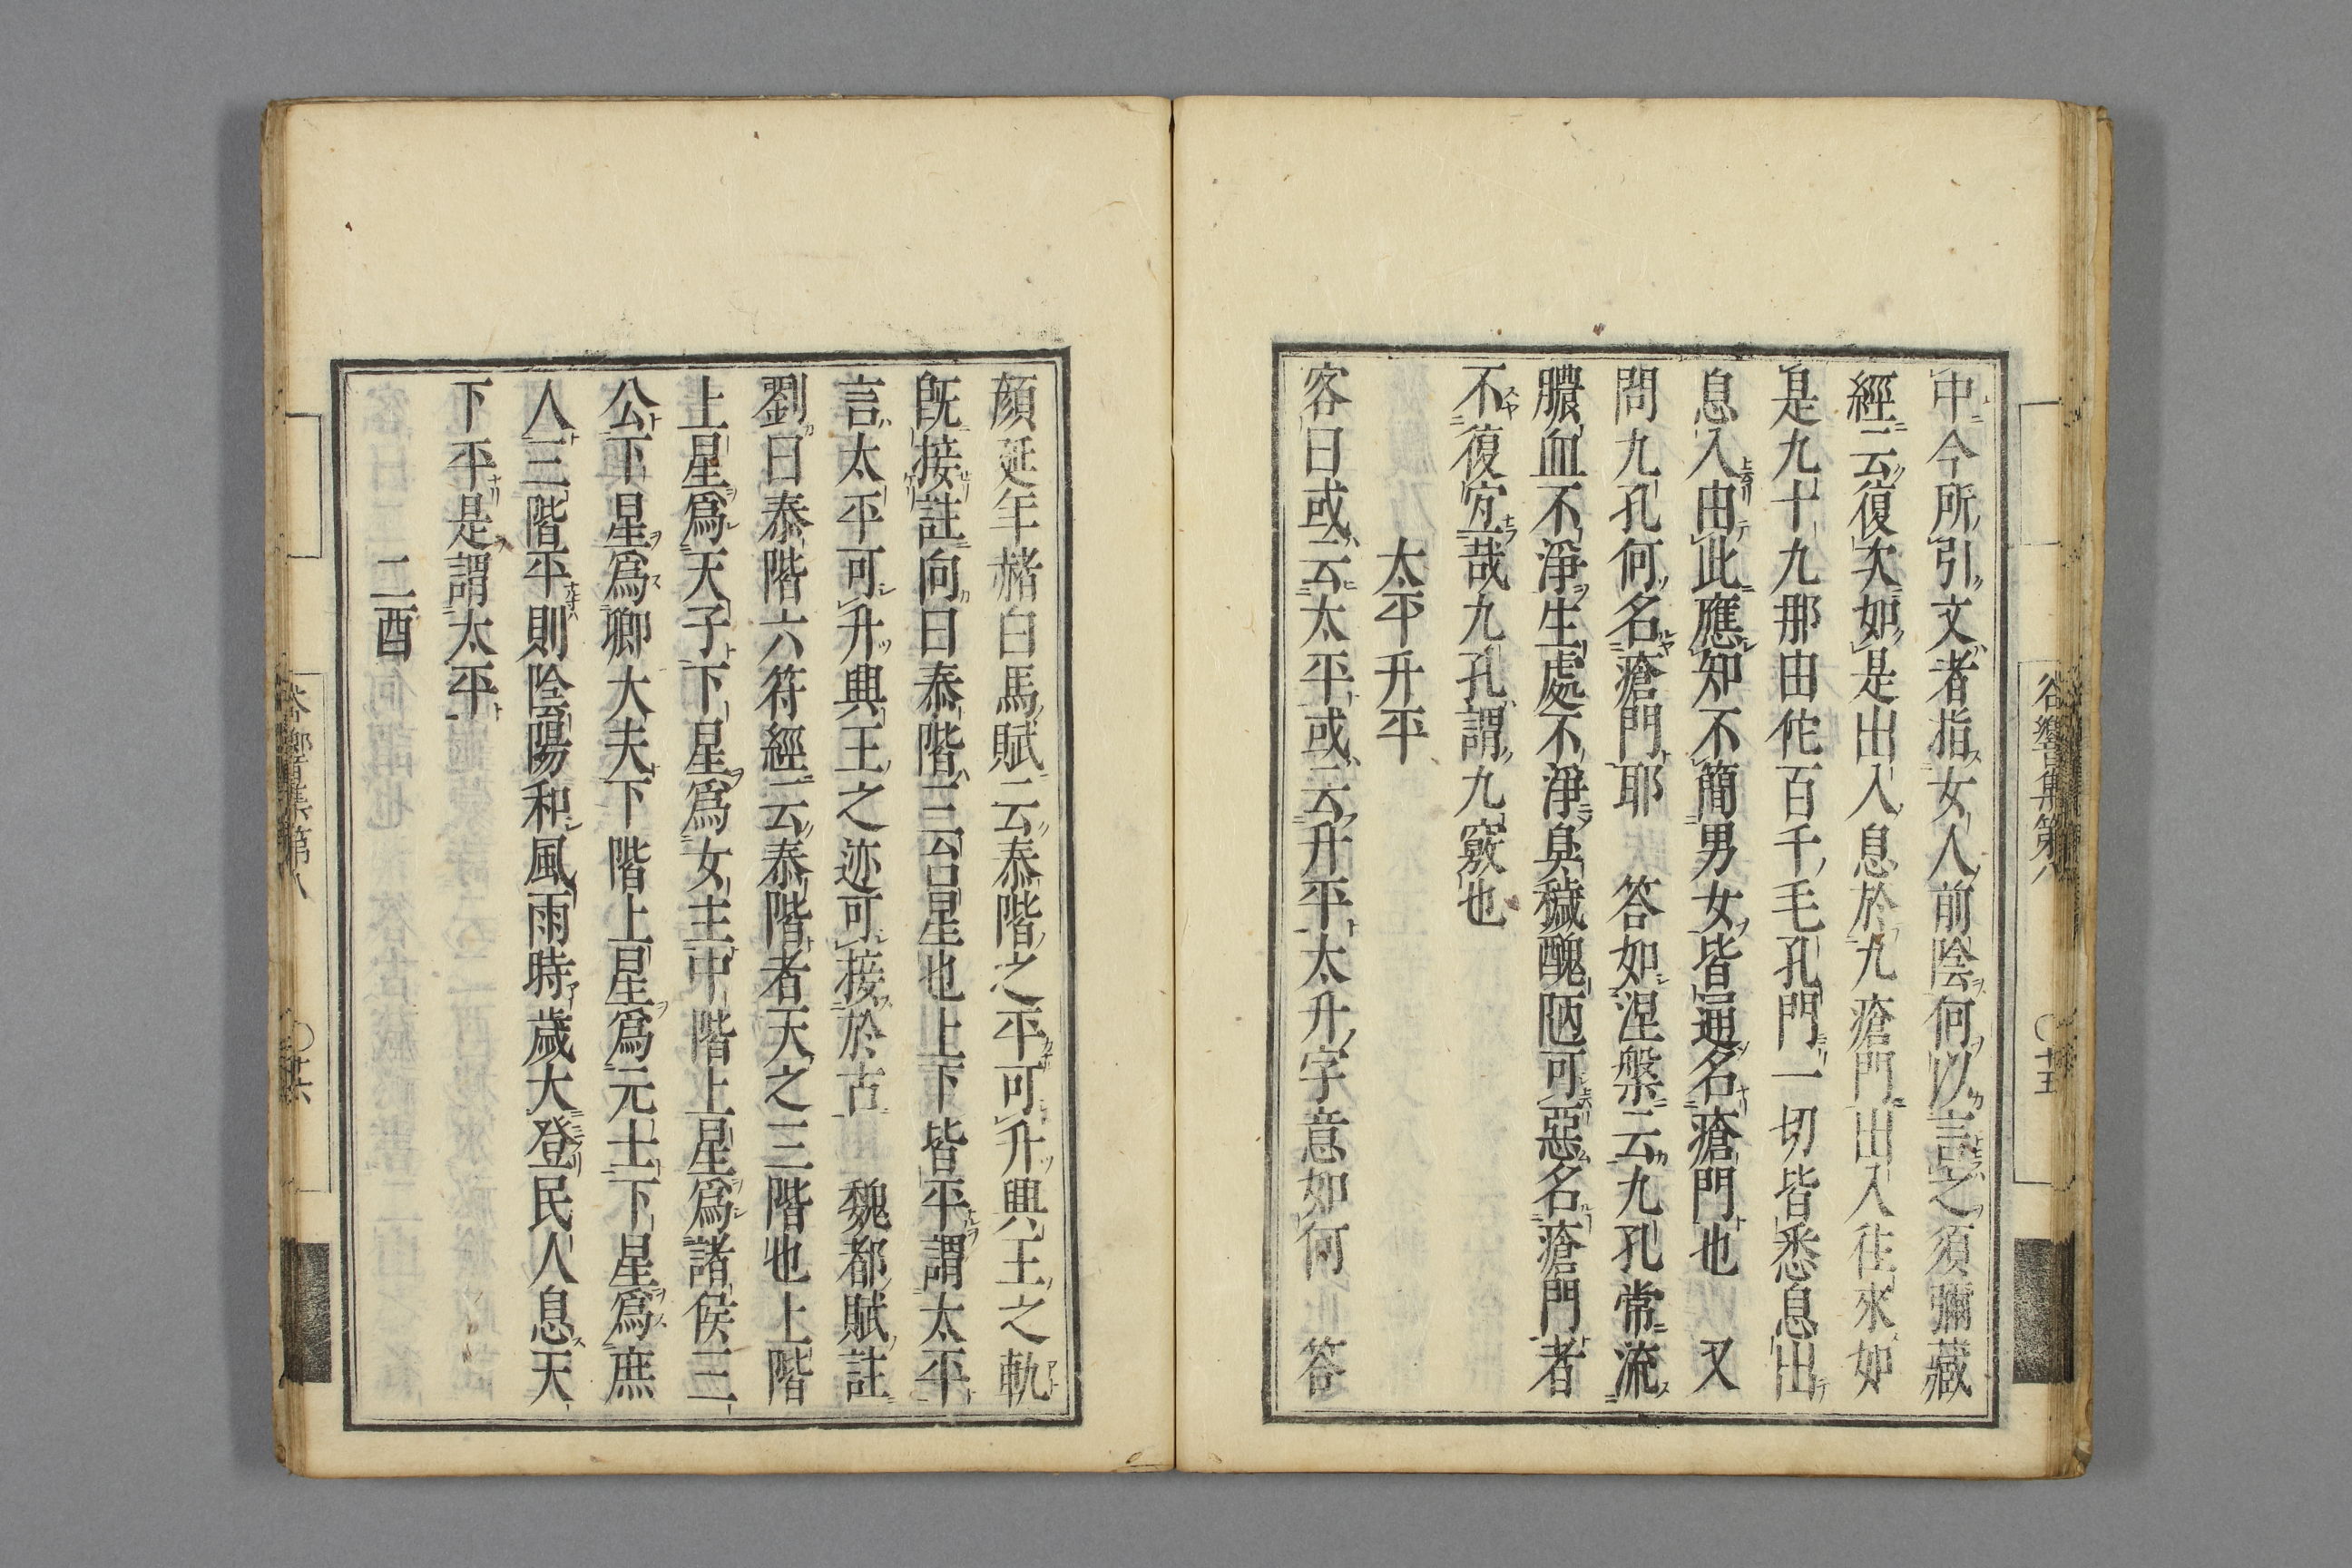 中今所引文者指女人前陰何以言之須彌藏
經云復次如是出入息於九瘡門出入往來如
是九十九那由佗百千毛孔門一切皆悉息出
息入由此應知不簡男女皆通名瘡門也　又
問九孔何名瘡門耶　答如涅槃云九孔常流
膿血不淨生處不淨臭穢醜陋可惡名瘡門者
不復宜哉九孔謂九竅也
太平升平
客曰或云太平或云升平太升字意如何　答
谷響集第八
〇廿五
顔延年赭白馬賦云泰階之平可升興王之軌
既接註向曰泰階三台星也上下皆平謂太平
言太平可升興王之迹可接於古　魏都賦註
劉曰泰階六符經云泰階者天之三階也上階
上星爲天子下星爲女主中階上星爲諸侯三
公下星爲卿大夫下階上星爲元士下星爲庶
人三階平則陰陽和風雨時歳大登民人息天
下平是謂太平
二酉
谷響集第八
〇廿六